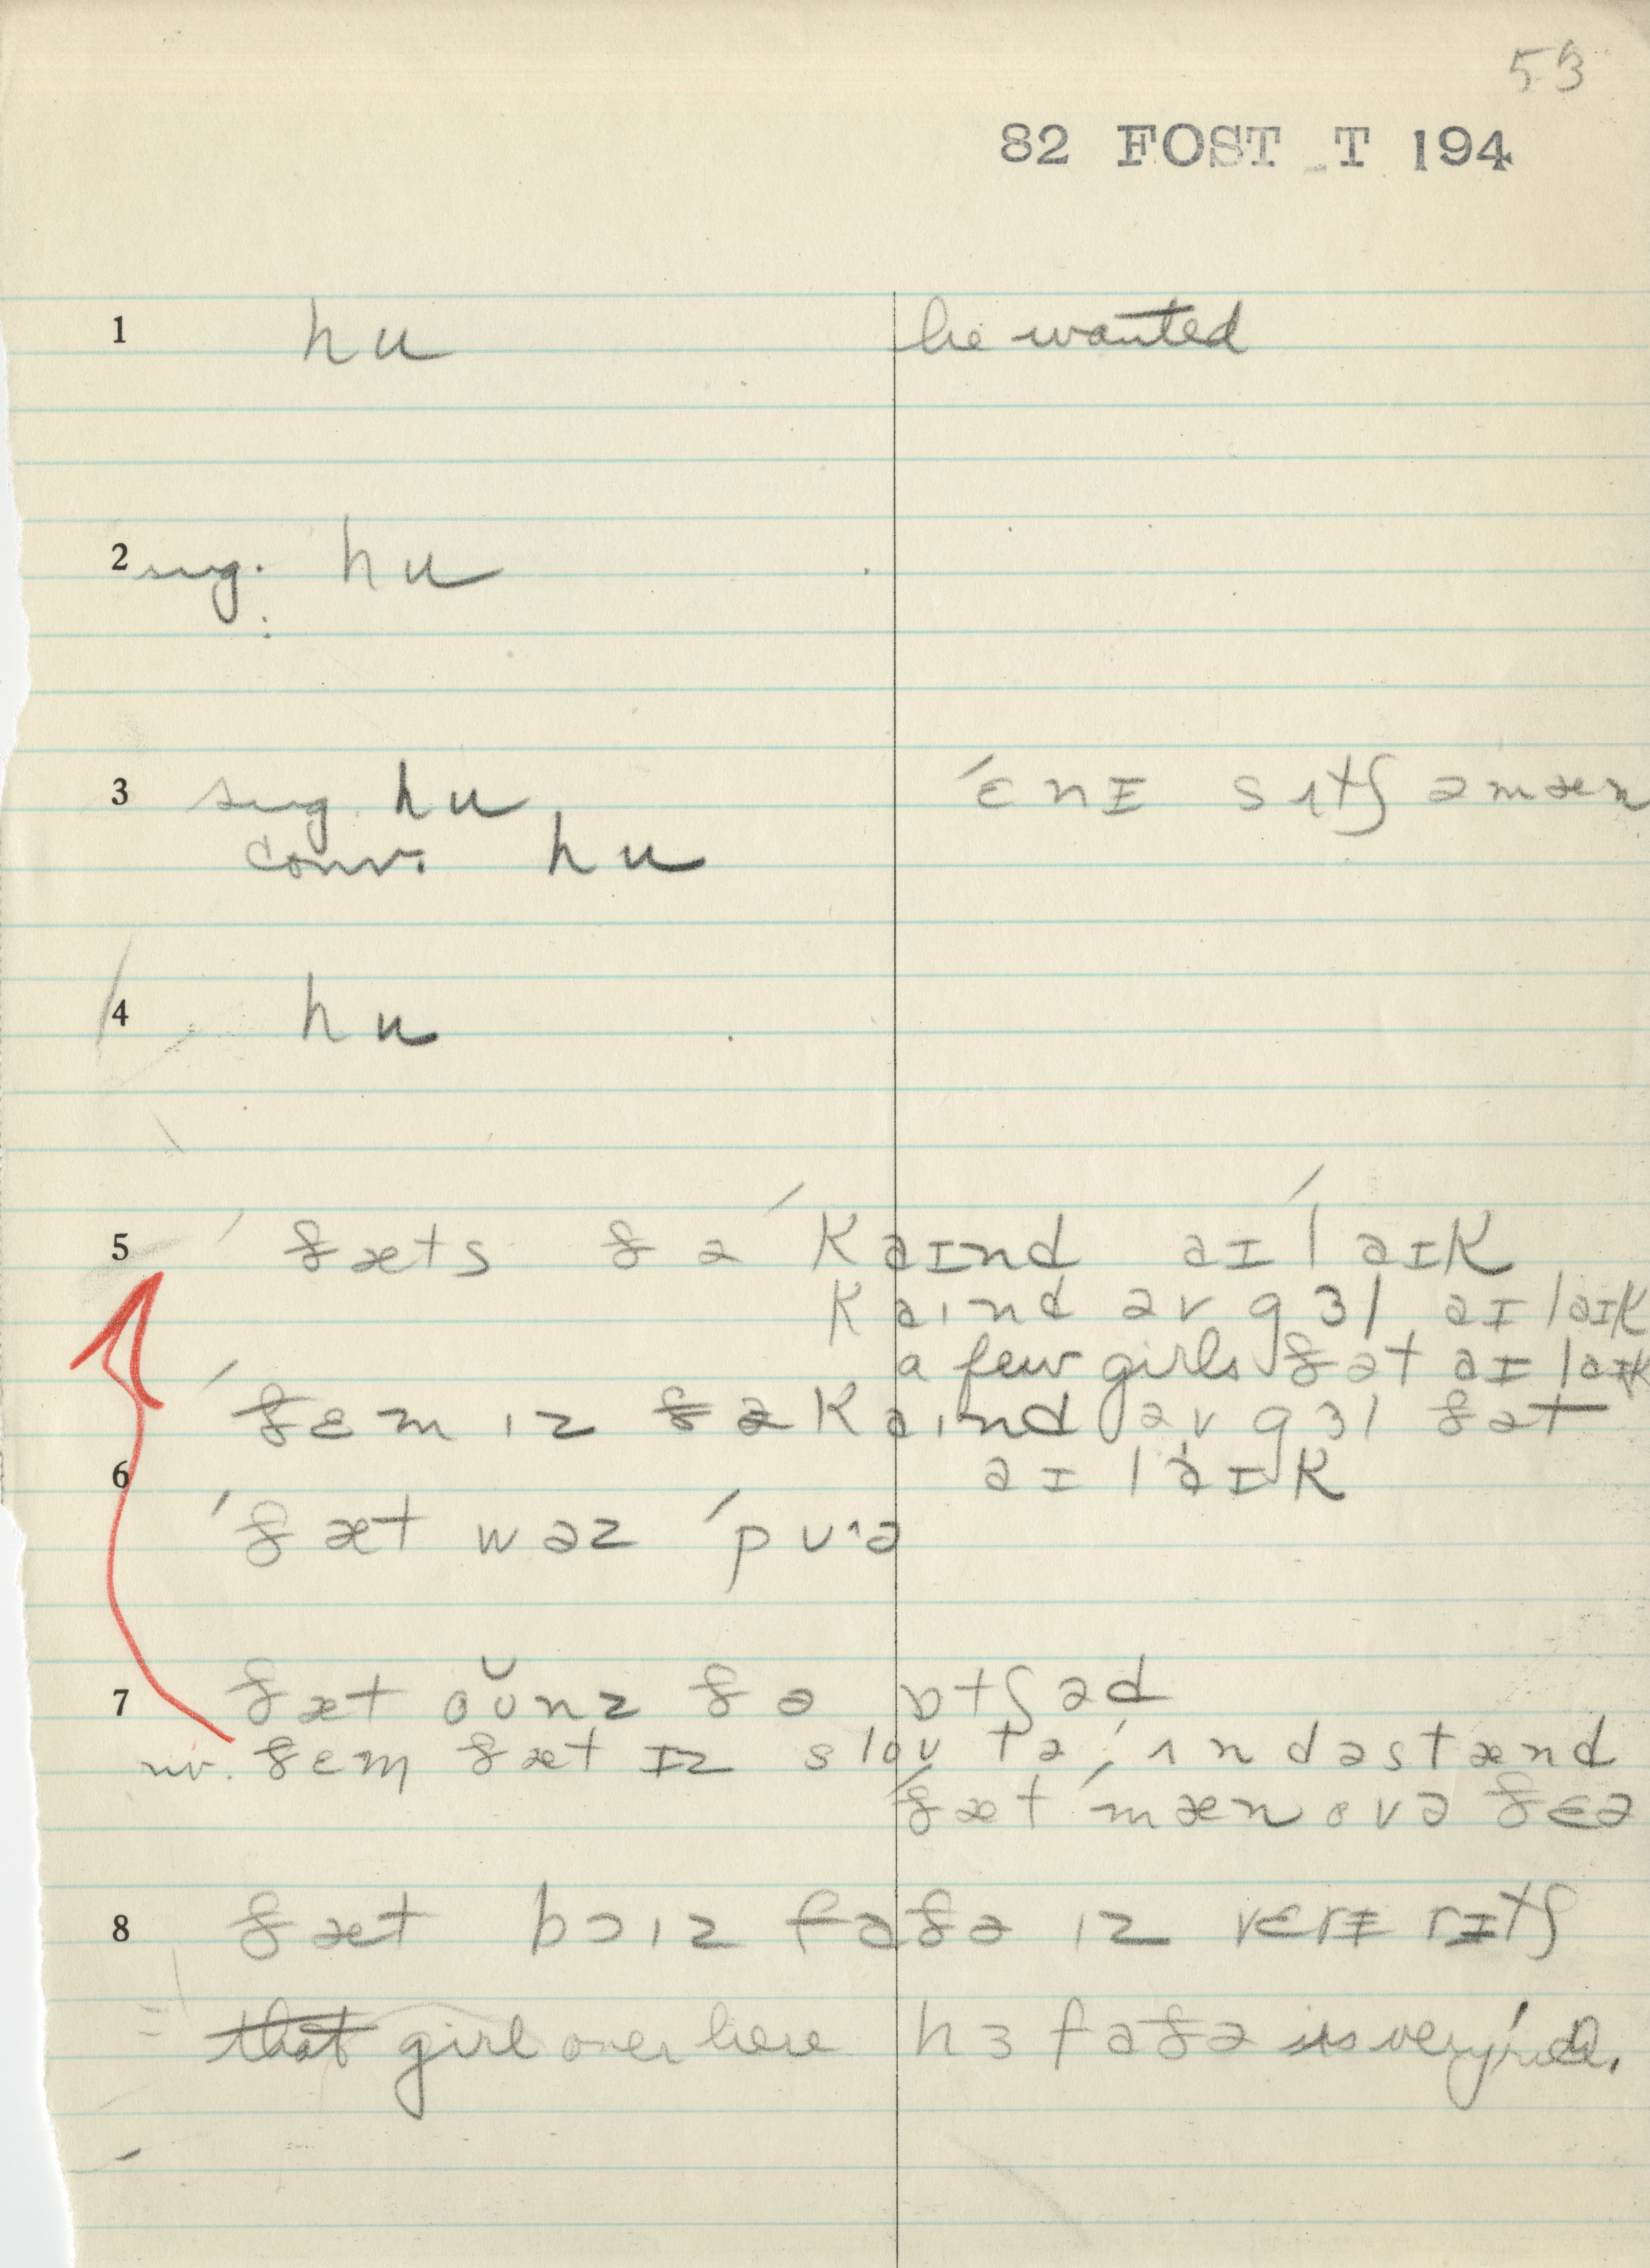 53
82 FOST T 194
1 hu he wanted
2 sug. hu
3 sug. hu ˈɛnɪ sɪtʃ ə mæn
conv. hu
4 hu
5 ˈðæts ðə ˈkaɪnd aɪ ˈlaɪk
kaɪnd əv gɜl aɪ laɪk
a few girls ðət aɪ laɪk
ˈðɛm ɪz ðə kaɪnd əv gɜl ðət
6 aɪ laɪk
ˈðæt wəz ˈpuˑə
7 ðæt oʊnz ðə ɒtʃəd
ðɛm ðæt ɪz sloʊ tə ʌndəstænd
ˈðæt ˈmæn ovə ðɛə
8 ðæt bɔɪz faðə ɪz vɛrɪ rɪtʃ
that girl over here hɜ faðə is very rich.